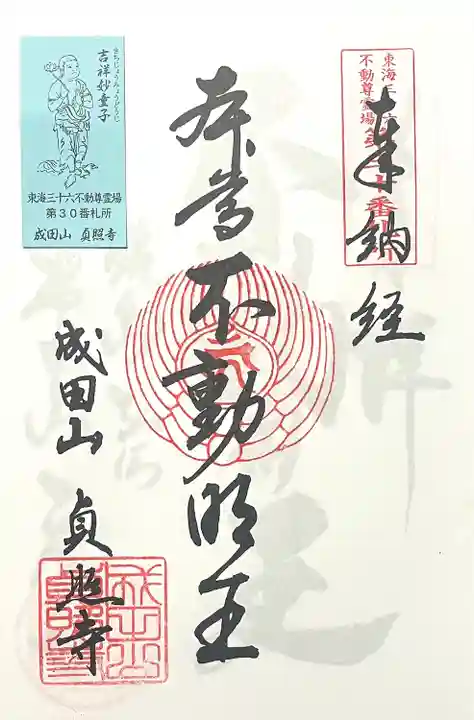 東海三十六
不動尊霊場
第三十番札所
奉納経
本尊不動明王
成田山 貞照寺
きちじょうみょうどうじ
吉祥妙童子
東海三十六不動尊霊場
第30番札所
成田山 貞照寺
成田山
貞照寺